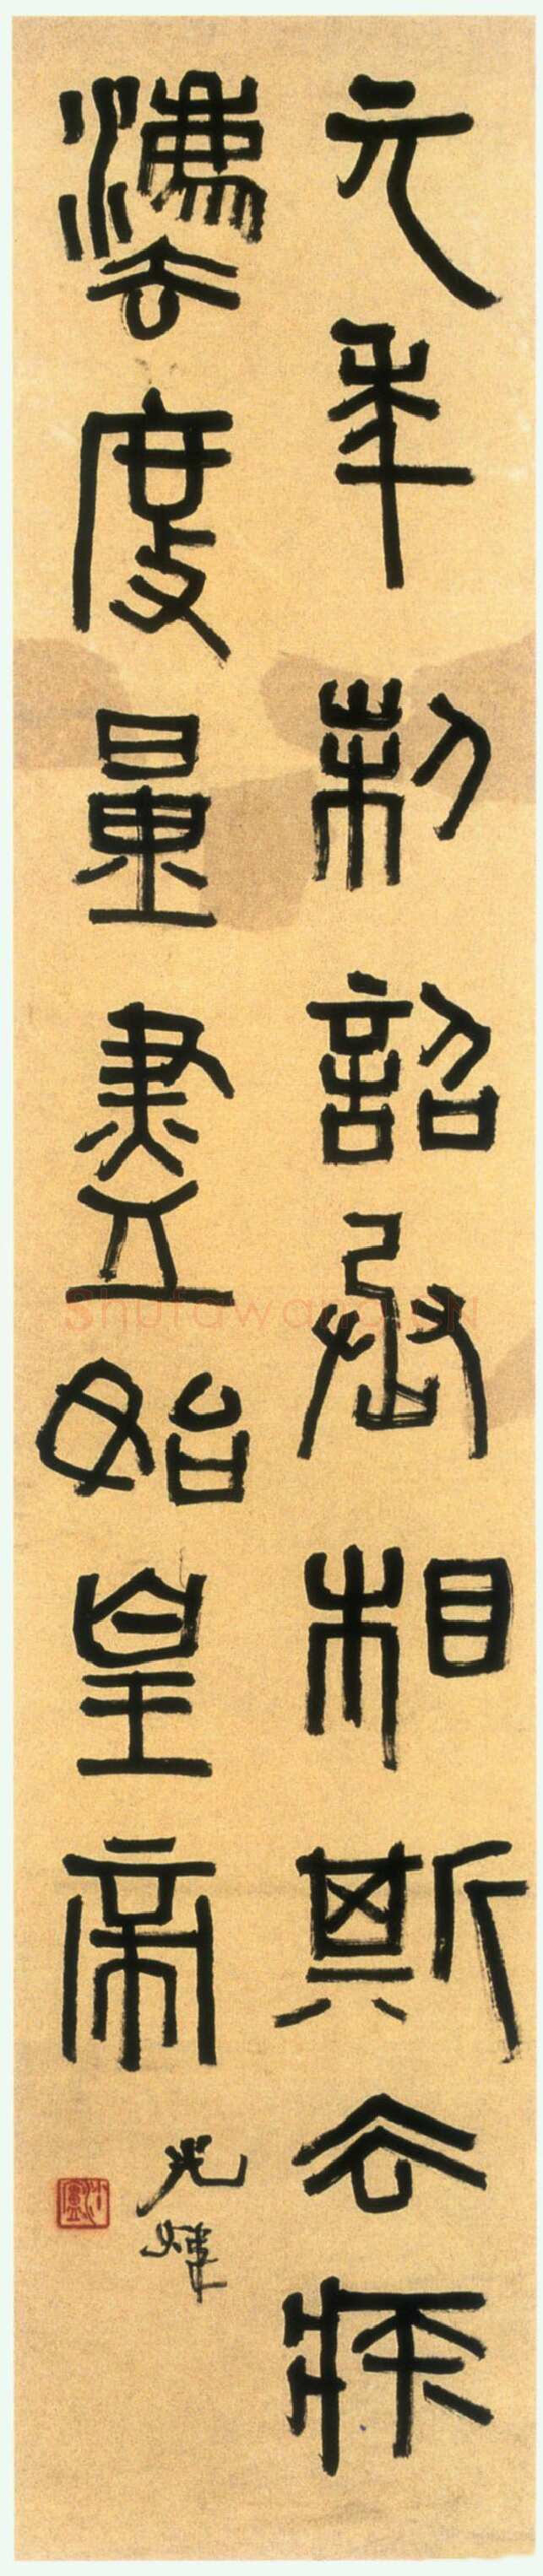 元年制詔丞相斯去疾
灋度量盡始皇帝
光煒
Shufawang.CN